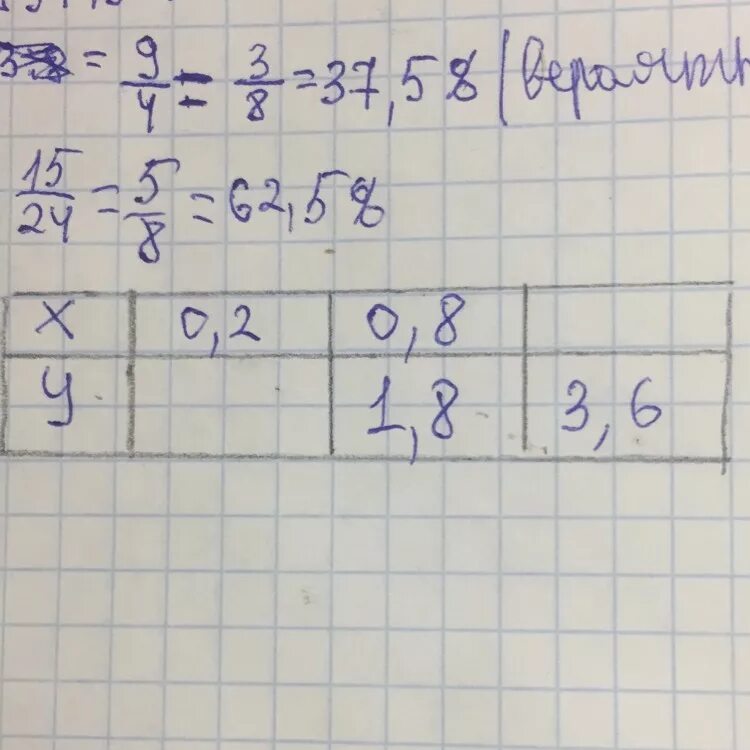 = 9/4 = 3/8 = 37,5% (вероятн
15/24 = 5/8 = 62,5%
x 0,2 0,8
y 1,8 3,6